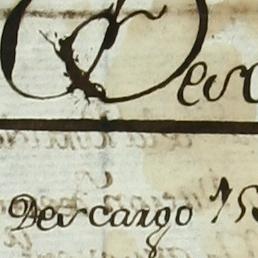 Desc
Descargo 15